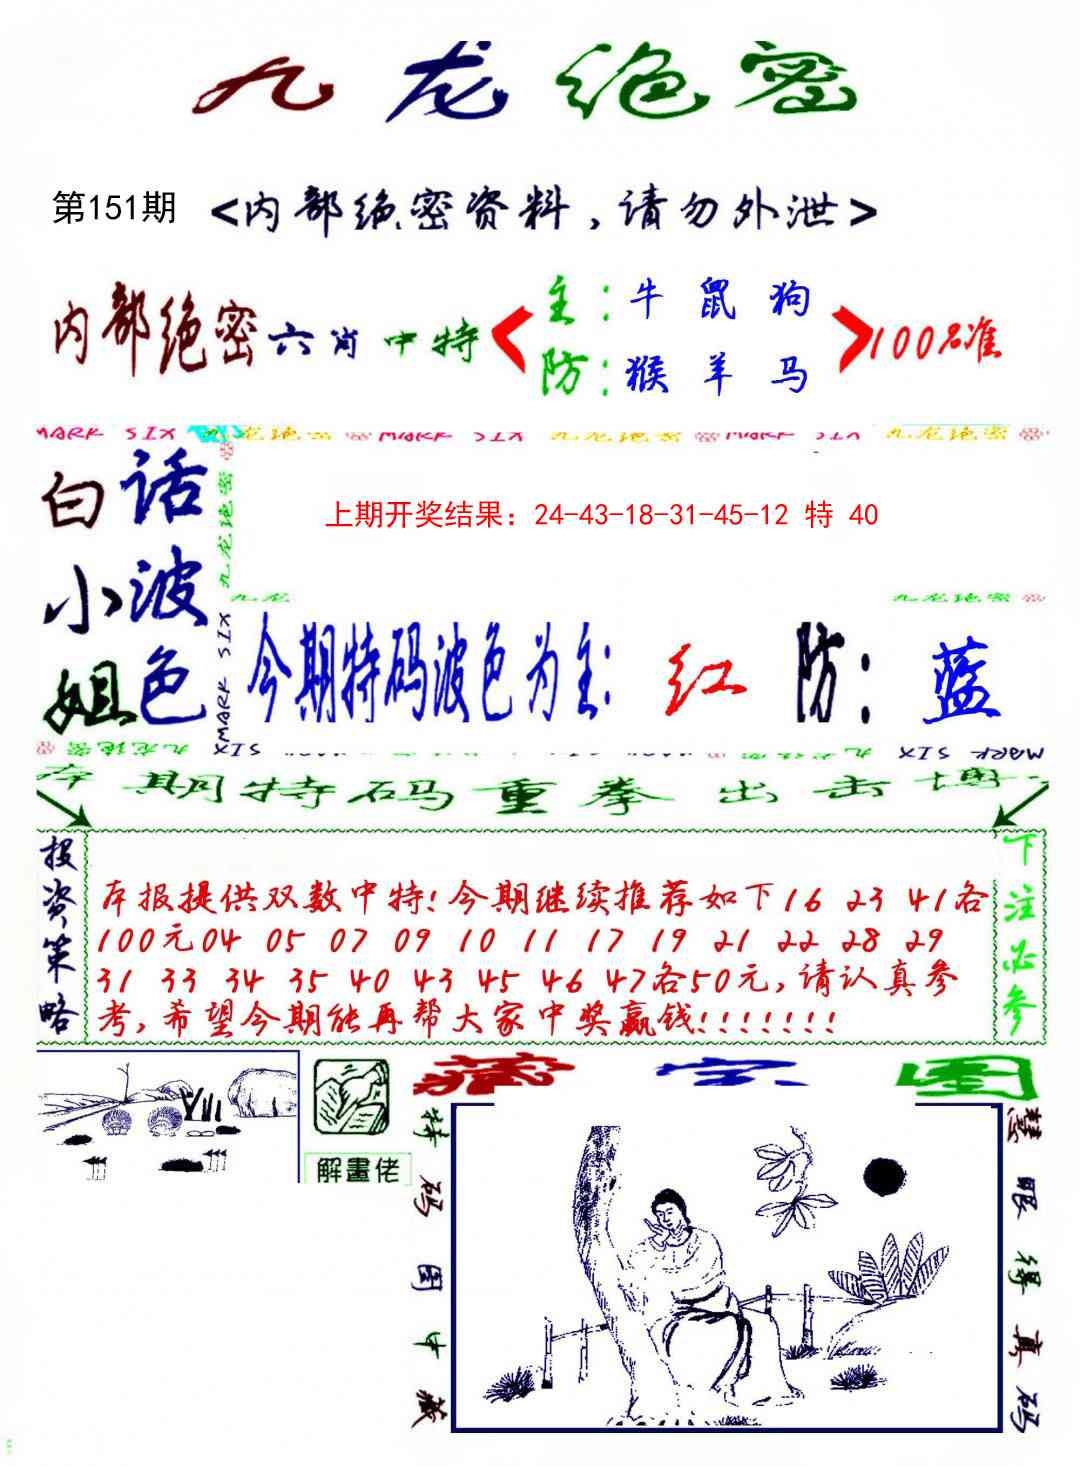 九龙绝密
第151期 <内部绝密资料,请勿外泄>
内部绝密六肖中特
主:牛 鼠 狗
防:猴 羊 马
100%准
MARK SIX 九龙绝密 MARK SIX 九龙绝密 MARK SIX 九龙绝密
白话
小波
姐色
九龙绝密
MARK SIX
上期开奖结果：24-43-18-31-45-12 特 40
九龙
九龙绝密
今期特码波色为主: 红 防: 蓝
九龙绝密 MARK SIX 九龙 MARK SIX
本期特码重拳出击博
投资策略
本报提供双数中特!今期继续推荐如下16 23 41各
100元04 05 07 09 10 11 17 19 21 22 28 29
31 33 34 35 40 43 45 46 47各50元,请认真参
考,希望今期能再帮大家中奖赢钱!!!!!!!
下注必参
解畫佬
藏宝图
特码图中藏
慧眼得真码